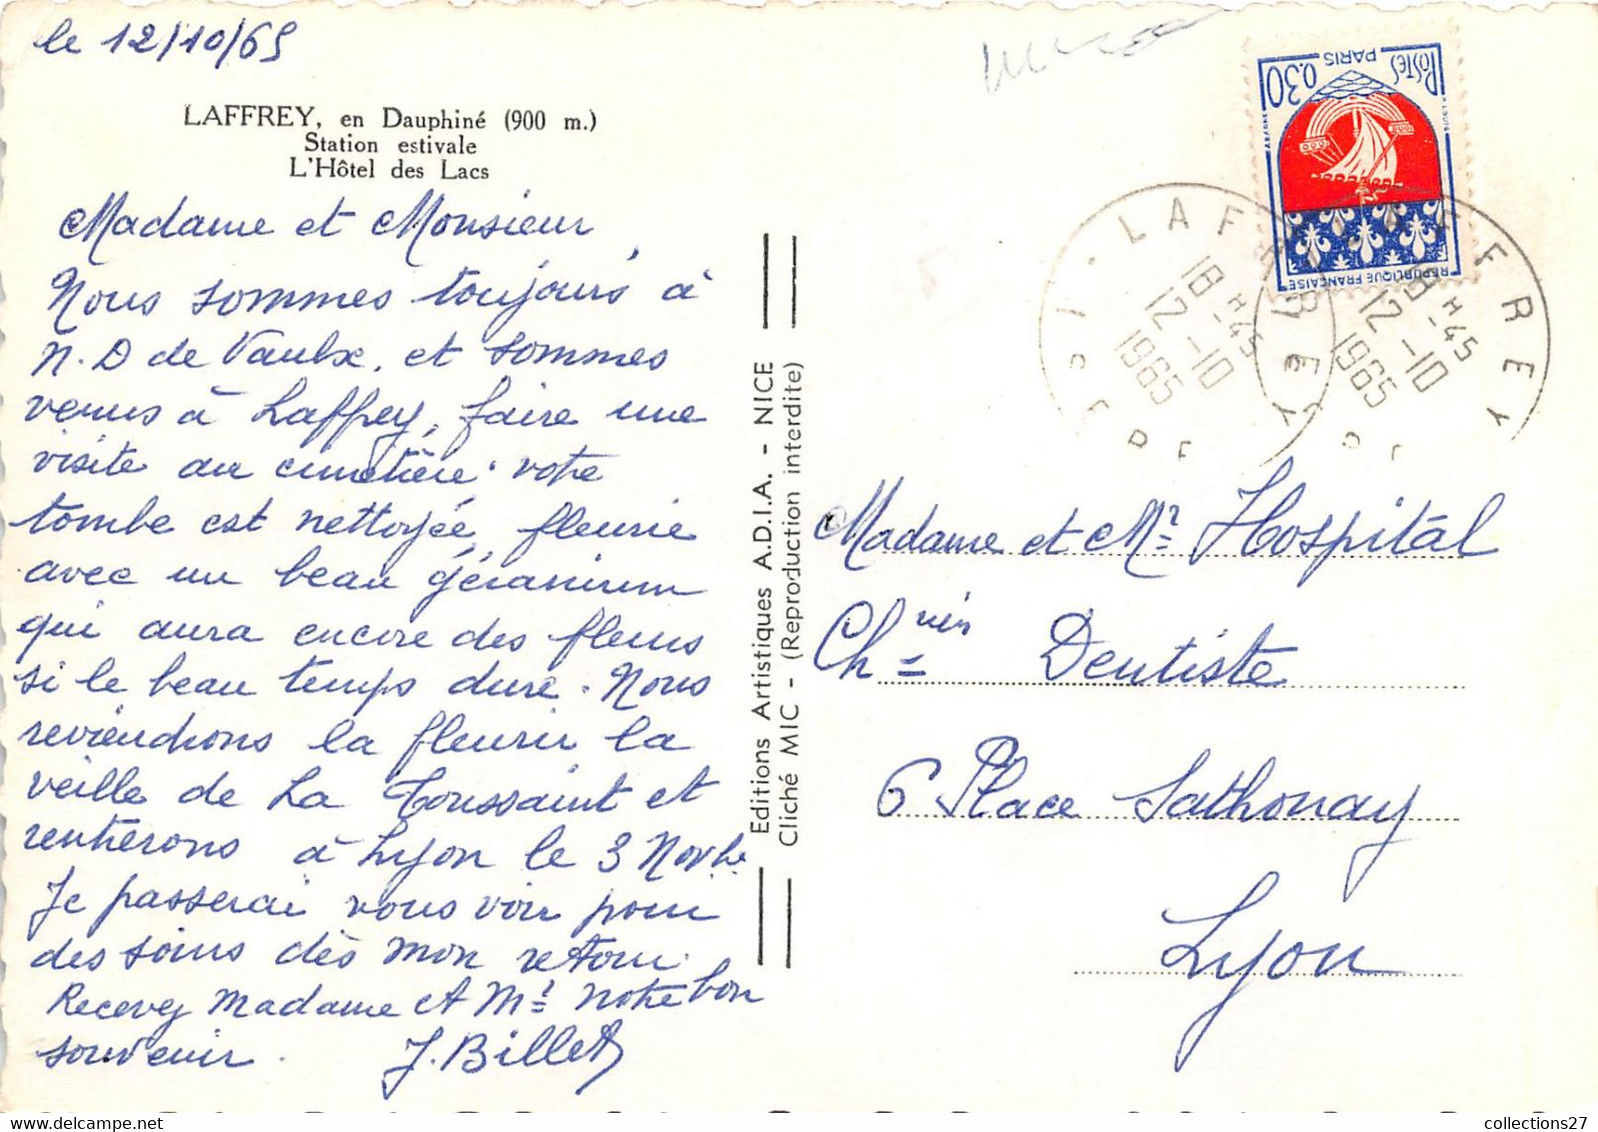 le 12/10/65
LAFFREY, en Dauphiné (900 m.)
Station estivale
L'Hôtel des Lacs
Madame et Monsieur,
Nous sommes toujours à
N. D de Vaulx. et sommes
venus à Laffrey, faire une
visite au cimetière. votre
tombe est nettoyée, fleurie
avec un beau géranium
qui aura encore des fleurs
si le beau temps dure. Nous
reviendrons la fleurir la
veille de La Toussaint et
rentrerons à Lyon le 3 Novbe
Je passerai vous voir pour
des soins dès mon retour.
Recevez Madame et Mr notre bon
souvenir. J. Billet
Editions Artistiques A.D.I.A. - NICE
Cliché MIC - (Reproduction interdite)
POSTES PARIS 0,30
REPUBLIQUE FRANÇAISE
LAFFREY
18 H -45
12 -10
1965
ISERE
LAFFREY
18 H -45
12 -10
1965
Madame et Mr Hospital
Chnien Dentiste
6 Place Sathonay
Lyon
collections27